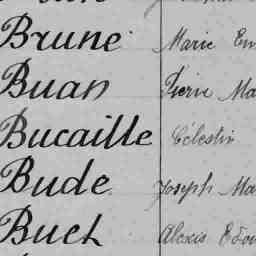 Brune Marie Em
Buan Pierre Ma
Bucaille Célestin
Bude Joseph Ma
Buet Alexis Edou